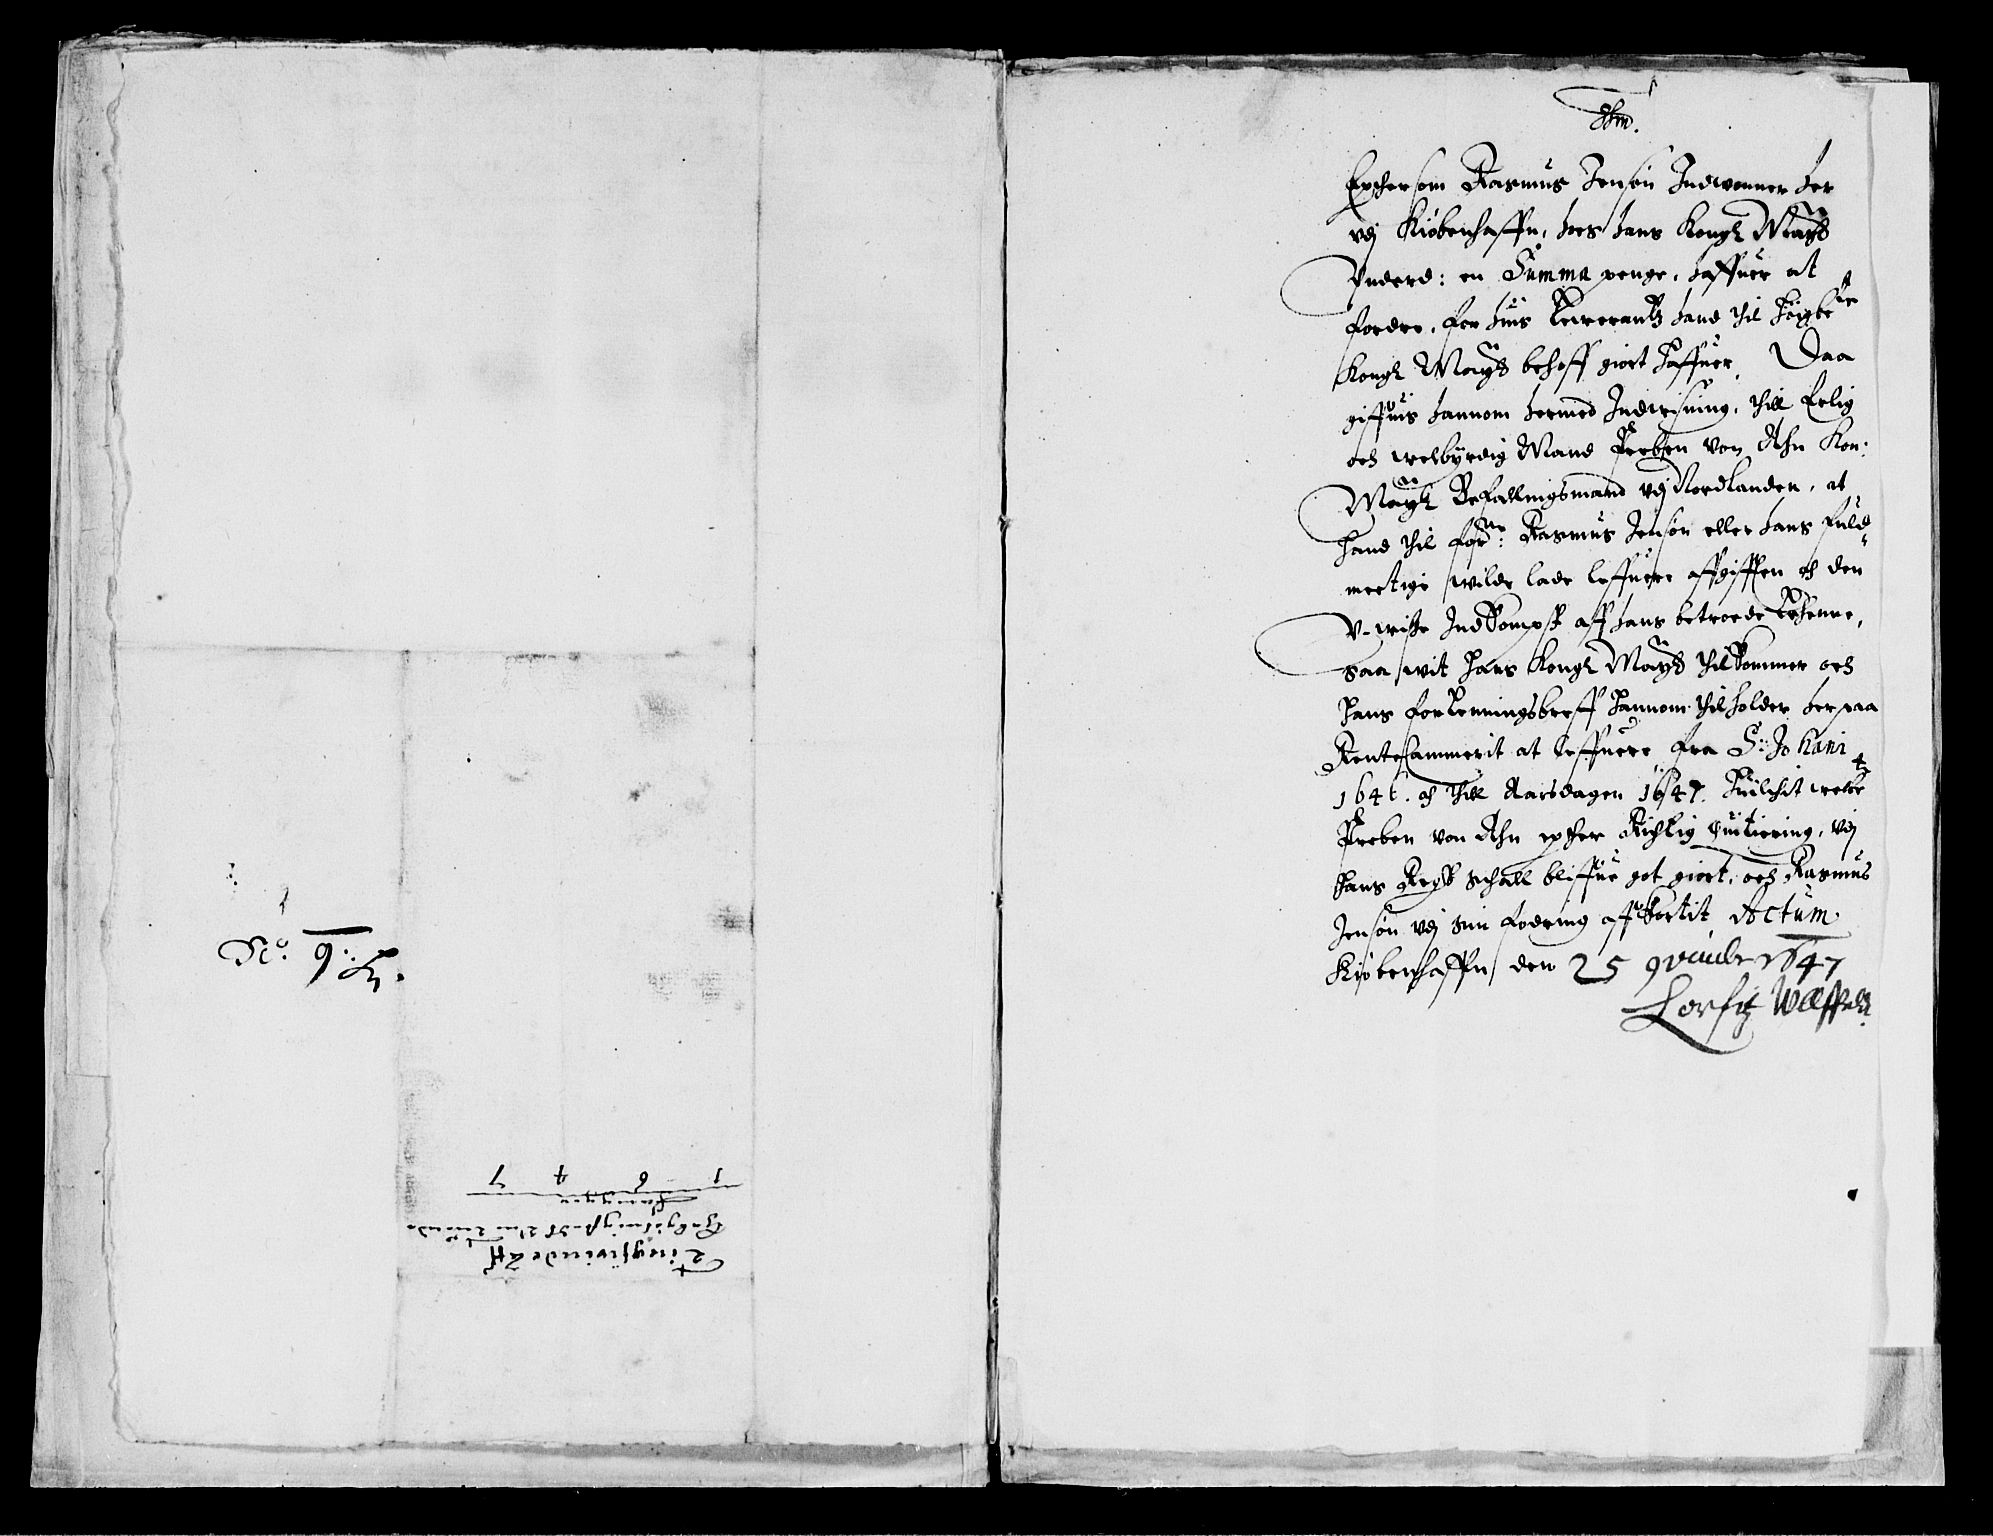 No. 9.
Tingsvinde Aff
1 6 4 7
Epthersom Rasmus Jensøn Indwonner her
vdj Kiøbenhaffn, hoes hans Kongl Mayts
Vnderd: en Summa penge, haffuer at
fordre, for huis Leuerantz hand thil Høigbete
Kongl Mayts behoff giort haffuer, Daa
giffuis hannom hermed Indvisning, thill Erlig
och welbyrdig Mand Preben von Ahn Kon:
Maytz Befallningsmand vdj Nordlanden, at
hand thil forne: Rasmus Jensøn eller hans fuld
mectige wilde lade leffuere affgifften och den
V-wisse Indkompst aff hans betroede Lehenne,
saa wit hans Kongl Mayts thilkommer och
hans forlenningsbreff hannom thilholder her paa
Rentecammerit at leffuere fra St: Johani
1646. och thill Aarsdagen 1647. Huilchit welbe
Preben von Ahn epther Richtig Quitering, vdj
hans Regsk schall bliffue got giort, och Rasmus
Jensøn vdj sin fodring affkortit Actum
Kiøbenhaffn den 25 9vembr 1647
Corfitz Wllfeldt